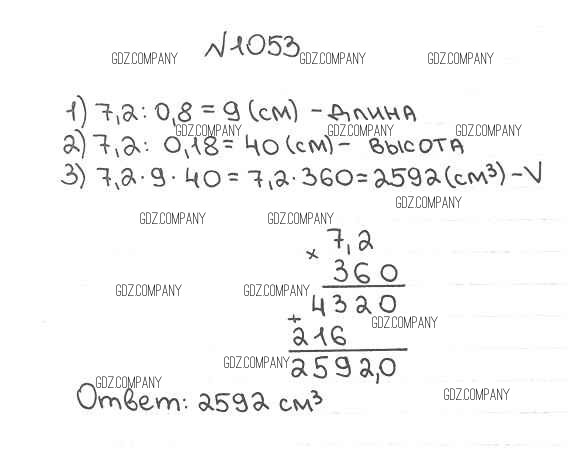 N1053
GDZ.COMPANY GDZ.COMPANY GDZ.COMPANY
1) 7,2 : 0,8 = 9 (см) - длина
GDZ.COMPANY GDZ.COMPANY GDZ.COMPANY
2) 7,2 : 0,18 = 40 (см) - высота
3) 7,2 · 9 · 40 = 7,2 · 360 = 2592 (см³) - V
GDZ.COMPANY
GDZ.COMPANY GDZ.COMPANY
7,2
× 360
GDZ.COMPANY GDZ.COMPANY
4320
+ 216
GDZ.COMPANY
GDZ.COMPANY
2592,0
GDZ.COMPANY
Ответ: 2592 см³
GDZ.COMPANY